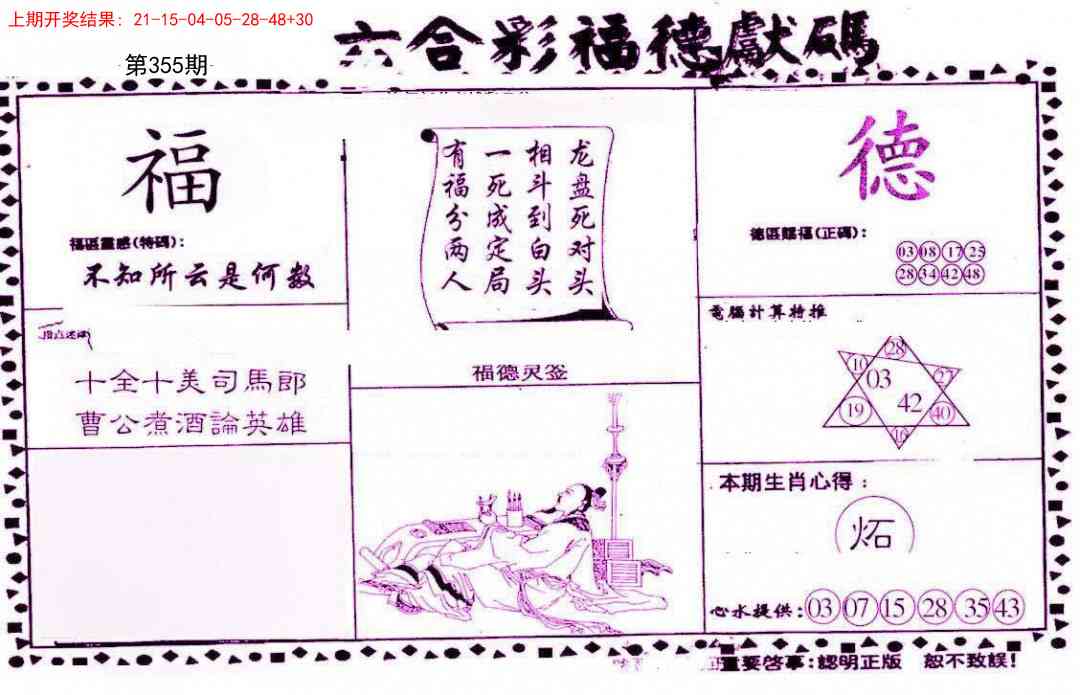 上期开奖结果：21-15-04-05-28-48+30
六合彩福德獻碼
第355期
福
福區靈感(特碼)：
不知所云是何数
十全十美司馬郎
曹公煮酒論英雄
龙盘死对头
相斗到白头
一死成定局
有福分两人
福德灵签
德
德區賜福(正碼)：
03 08 17 25
28 34 42 48
電腦計算特推
28
10 03 27
19 42 40
16
本期生肖心得：
炻
心水提供：03 07 15 28 35 43
重要啓事：認明正版 恕不致誤！